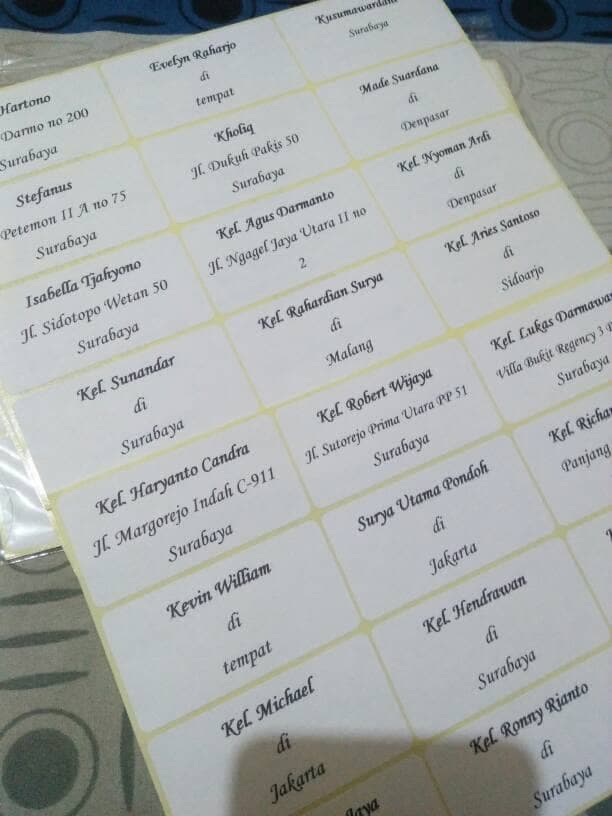 Hartono
Darmo no 200
Surabaya
Evelyn Raharjo
di
tempat
Kusumawardani
Surabaya
Stefanus
Petemon II A no 75
Surabaya
Kholiq
Jl. Dukuh Pakis 50
Surabaya
Made Suardana
di
Denpasar
Isabella Tjahyono
Jl. Sidotopo Wetan 50
Surabaya
Kel. Agus Darmanto
Jl. Ngagel Jaya Utara II no
2
Kel. Nyoman Ardi
di
Denpasar
Kel. Sunandar
di
Surabaya
Kel. Rahardian Surya
di
Malang
Kel. Aries Santoso
di
Sidoarjo
Kel. Haryanto Candra
Jl. Margorejo Indah C-911
Surabaya
Kel. Robert Wijaya
Jl. Sutorejo Prima Utara PP 51
Surabaya
Kel. Lukas Darmawa
Villa Bukit Regency 3
Surabaya
Kevin William
di
tempat
Surya Utama Pondoh
di
Jakarta
Kel. Richar
Panjang
Kel. Michael
di
Jakarta
Kel. Hendrawan
di
Surabaya
Jaya
Kel. Ronny Rianto
di
Surabaya